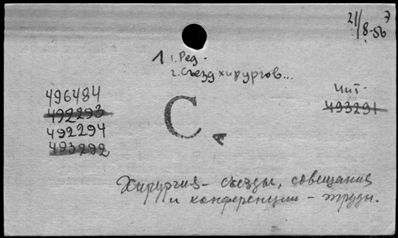 21/8-56 7
1 1. Ред.
2. Съезд хирургов...
496484
492293
492294
493292
Чит.
493291
С
А
Хирургия - съезды, совещания
и конференции - труды.